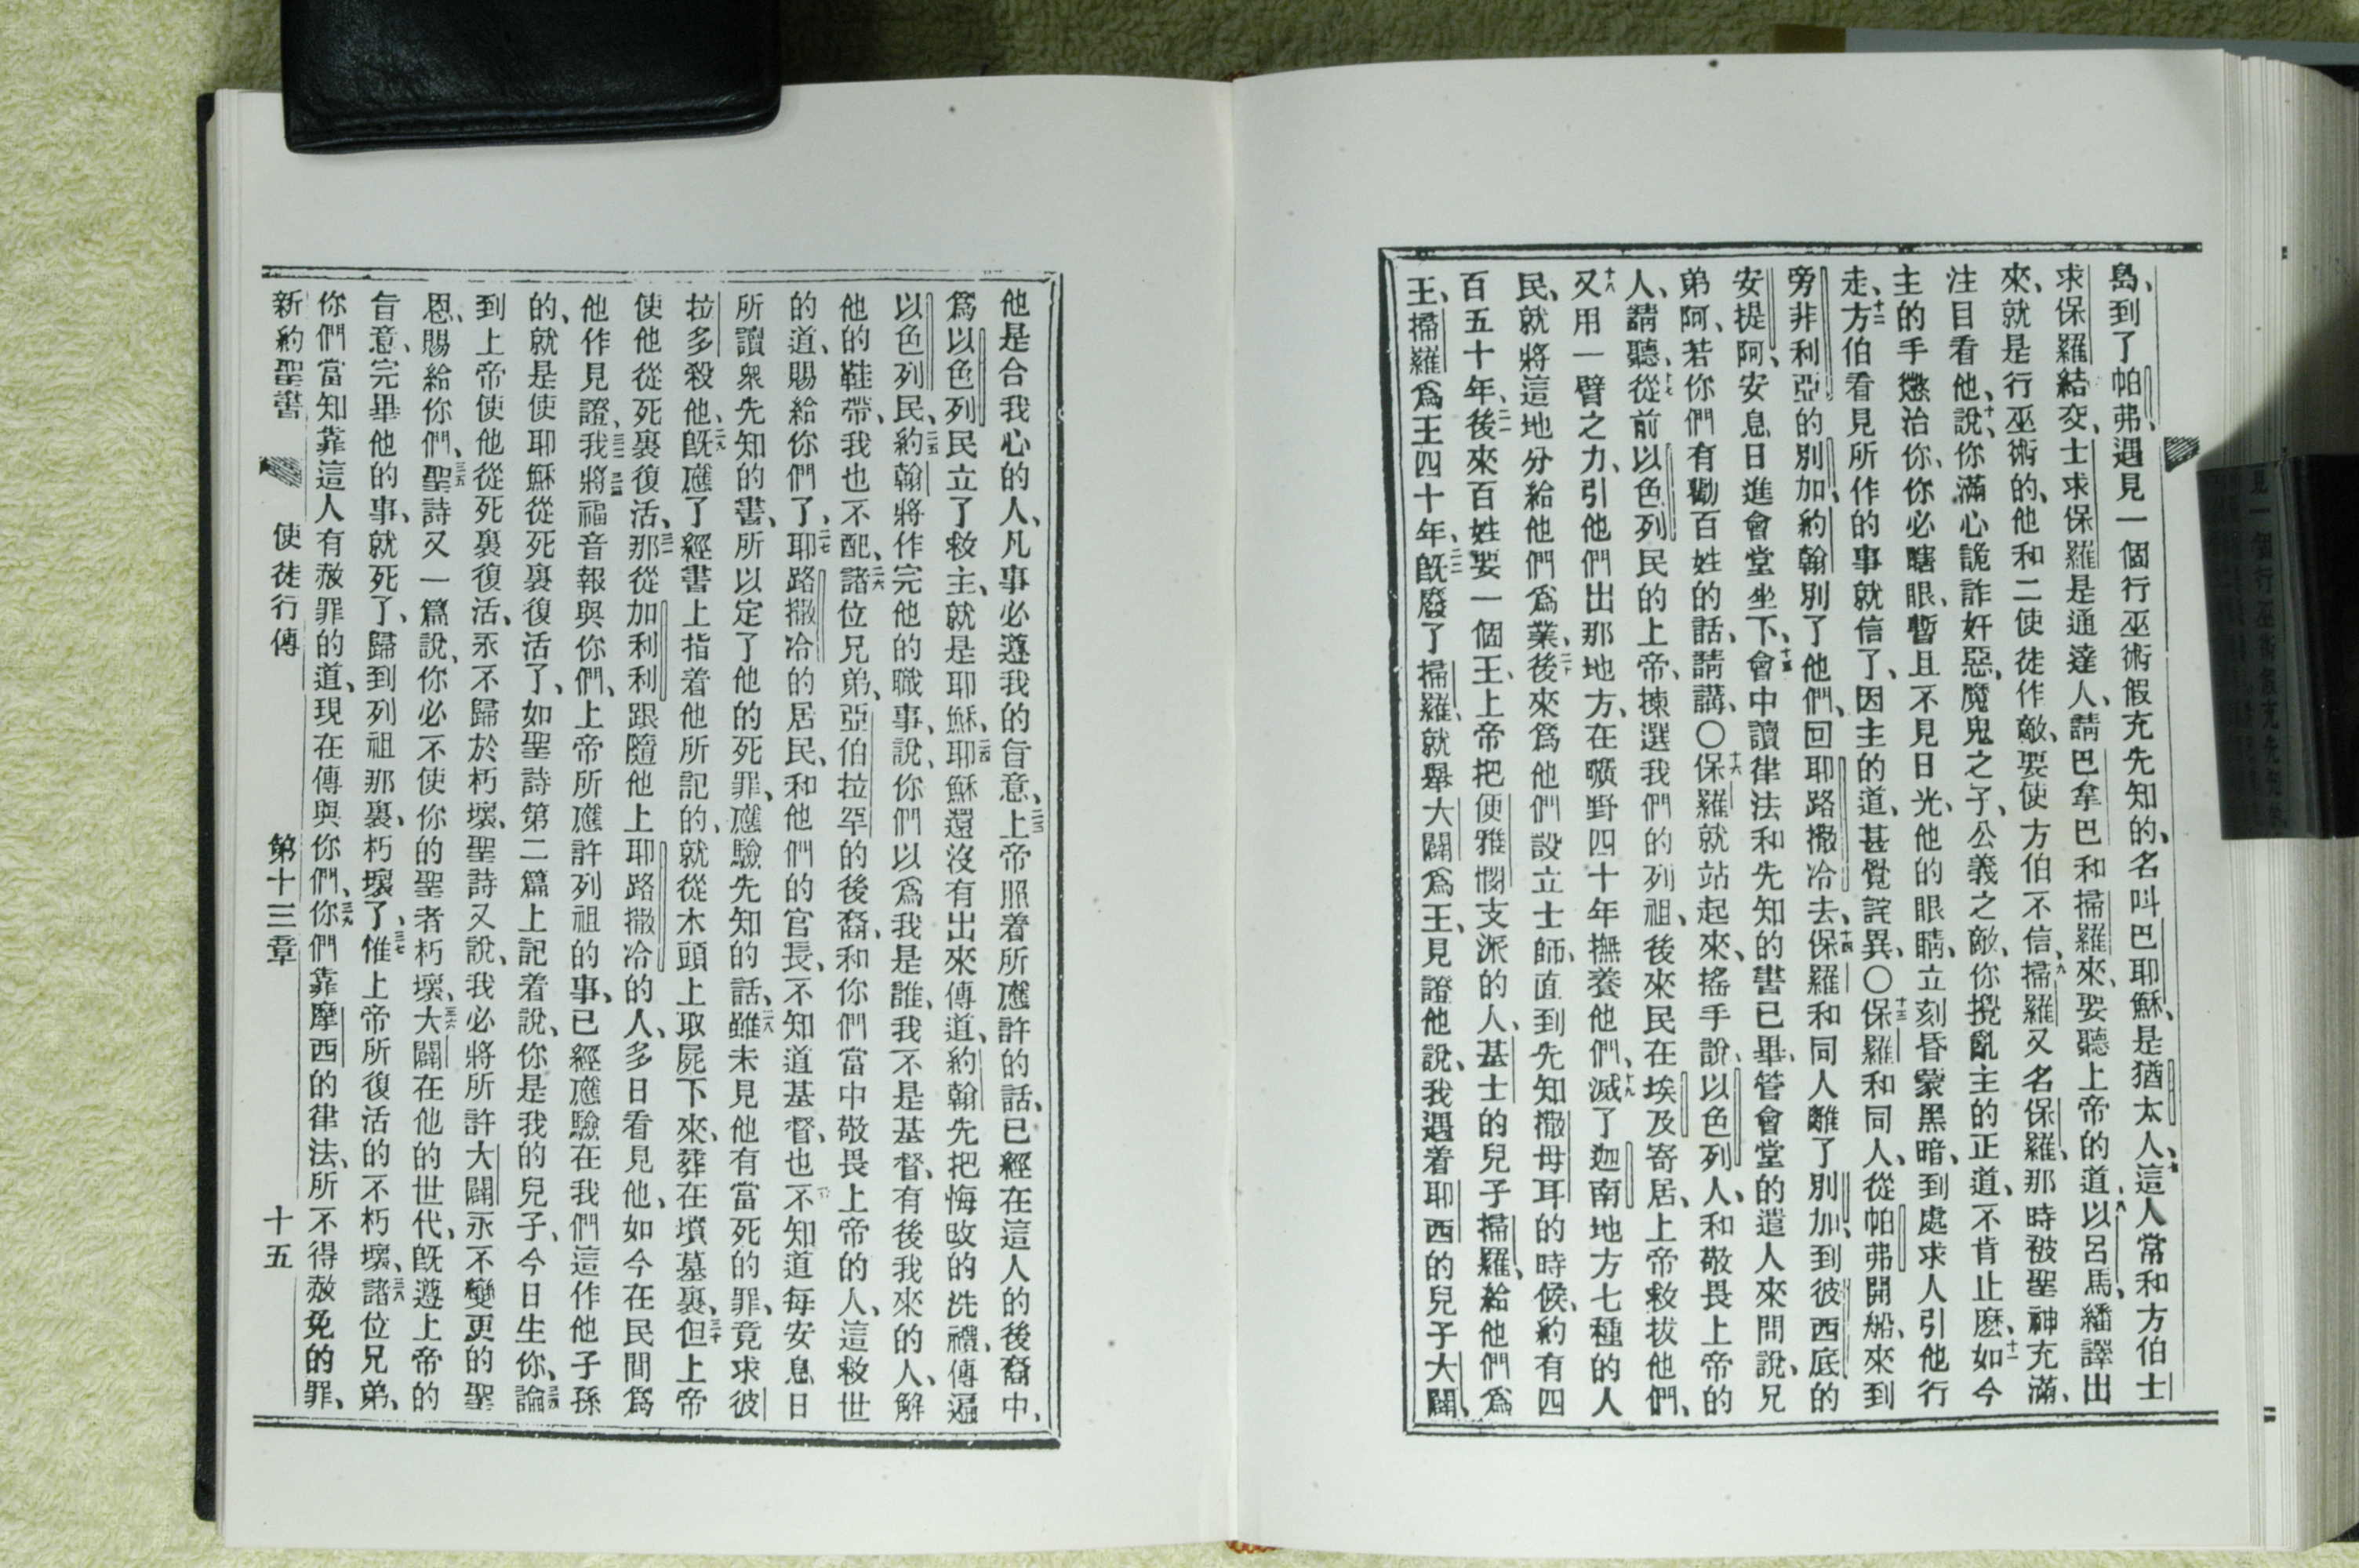 島、到了帕弗、遇見一個行巫術假充先知的、名叫巴耶穌、是猶太人、七這人常和方伯士
求保羅結交、士求保羅是通達人、請巴拿巴和掃羅來、要聽上帝的道、八以呂馬、繙譯出
來、就是行巫術的、他和二使徒作敵、要使方伯不信、九掃羅又名保羅、那時被聖神充滿、
注目看他、十說、你滿心詭詐奸惡、魔鬼之子、公義之敵、你攪亂主的正道、不肯止麽、十一如今
主的手懲治你、你必瞎眼、暫且不見日光、他的眼睛、立刻昏蒙黑暗、到處求人引他行
走、十二方伯看見所作的事、就信了、因主的道、甚覺詫異、〇十三保羅和同人、從帕弗開船、來到
旁非利亞的別加、約翰別了他們、回耶路撒冷去、十四保羅和同人離了別加、到彼西底的
安提阿、安息日進會堂坐下、十五會中讀律法和先知的書已畢、管會堂的遣人來問說、兄
弟阿、若你們有勸百姓的話、請講、〇十六保羅就站起來、搖手說、以色列人、和敬畏上帝的
人、請聽、十七從前以色列民的上帝、揀選我們的列祖、後來民在埃及寄居、上帝救拔他們、
十八又用一臂之力、引他們出那地方、在曠野四十年撫養他們、十九滅了迦南地方七種的人
民、就將這地分給他們爲業、二十後來爲他們設立士師、直到先知撒母耳的時候、約有四
百五十年、二一後來百姓要一個王、上帝把便雅憫支派的人、基士的兒子掃羅、給他們爲
王、掃羅爲王四十年、二二旣廢了掃羅、就舉大闢爲王、見證他說、我遇着耶西的兒子大闢、
他是合我心的人、凡事必遵我的旨意、二三上帝照着所應許的話、已經在這人的後裔中、
爲以色列民立了救主、就是耶穌、二四耶穌還沒有出來傳道、約翰先把悔改的洗禮、傳遍
以色列民、二五約翰將作完他的職事、說、你們以爲我是誰、我不是基督、有後我來的人、解
他的鞋帶、我也不配、二六諸位兄弟、亞伯拉罕的後裔、和你們當中敬畏上帝的人、這救世
的道、賜給你們了、二七耶路撒冷的居民、和他們的官長、不知道基督、也不知道每安息日
所讀衆先知的書、所以定了他的死罪、應驗先知的話、二八雖未見他有當死的罪、竟求彼
拉多殺他、二九旣應了經書上指着他所記的、就從木頭上取屍下來、葬在墳墓裏、三十但上帝
使他從死裏復活、三一那從加利利跟隨他上耶路撒冷的人、多日看見他、如今在民間爲
他作見證、三二我將福音報與你們、上帝所應許列祖的事、已經應驗在我們這作他子孫
的、就是使耶穌從死裏復活了、如聖詩第二篇上記着說、你是我的兒子、今日生你、三四論
到上帝使他從死裏復活、永不歸於朽壞、聖詩又說、我必將所許大闢永不變更的聖
恩、賜給你們、三五聖詩又一篇說、你必不使你的聖者朽壞、三六大闢在他的世代、旣遵上帝的
旨意、完畢他的事、就死了、歸到列祖那裏、朽壞了、三七惟上帝所復活的不朽壞、三八諸位兄弟、
你們當知靠這人有赦罪的道、現在傳與你們、三九你們靠摩西的律法、所不得赦免的罪、
新約聖書 使徒行傳 第十三章 十五